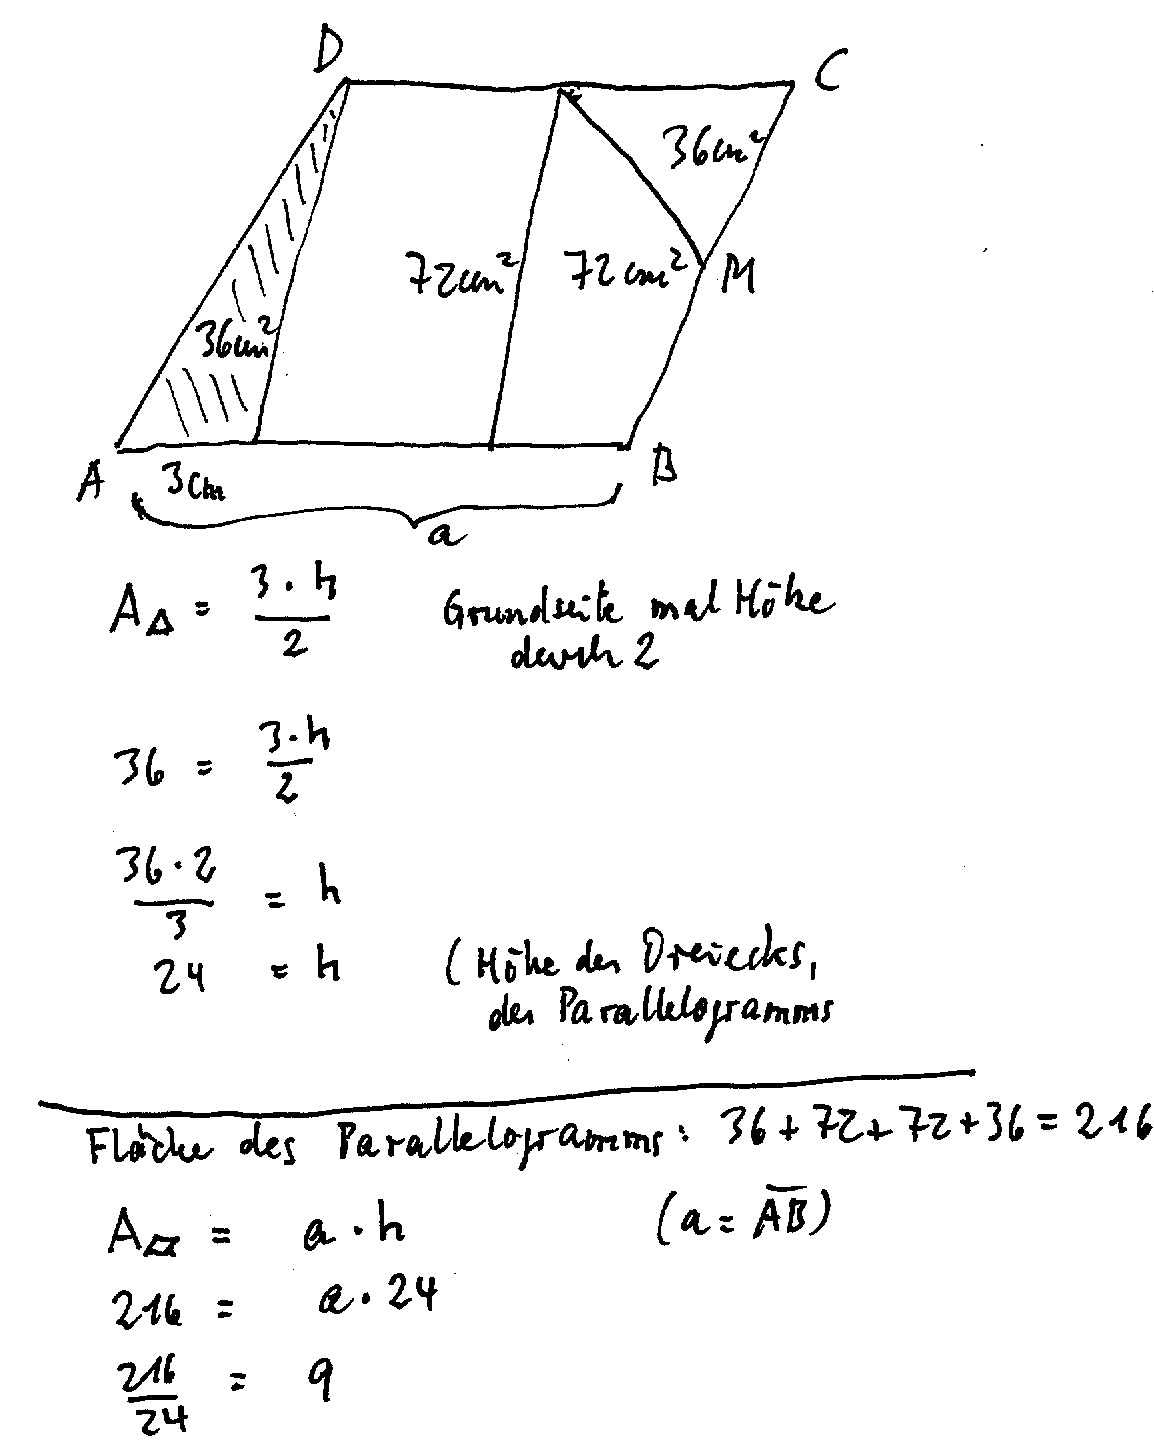 D
C
36cm²
72cm²
72cm²
M
36cm²
A
3cm
B
a
A△ = 3·h/2 Grundseite mal Höhe
durch 2
36 = 3·h/2
36·2/3 = h
24 = h (Höhe des Dreiecks,
des Parallelogramms
Fläche des Parallelogramms: 36+72+72+36=216
A▱ = a·h (a = A̅B̅)
216 = a·24
216/24 = 9